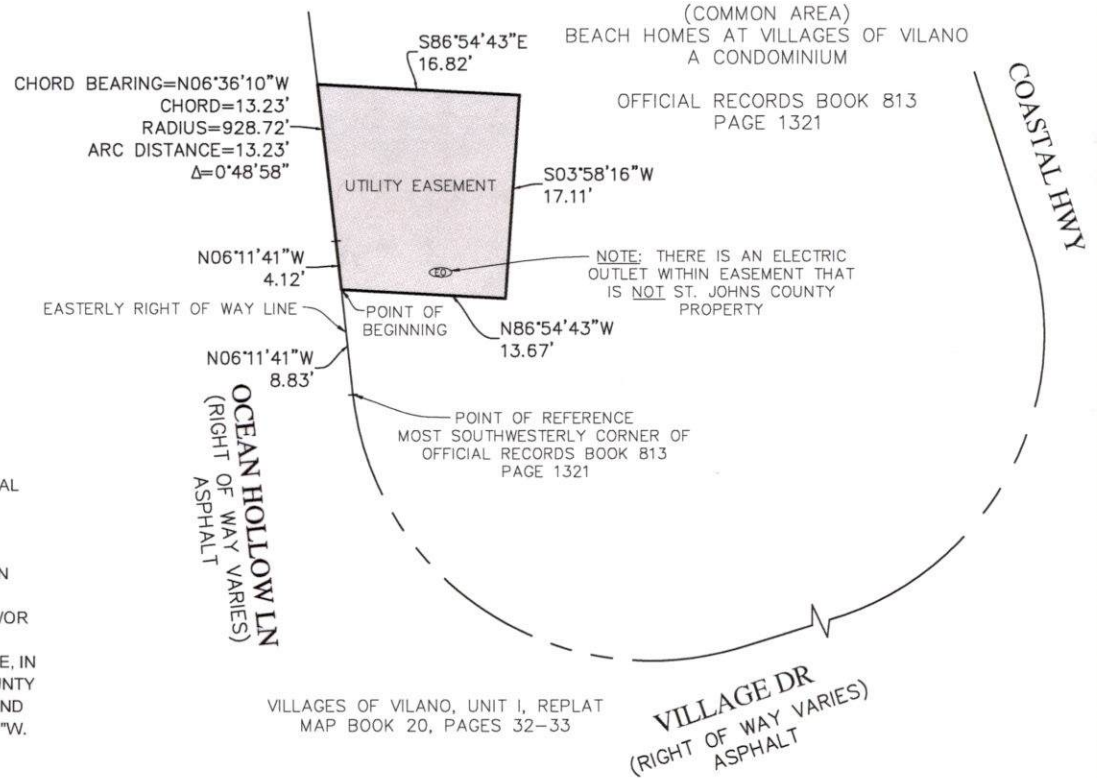 (COMMON AREA)
BEACH HOMES AT VILLAGES OF VILANO
A CONDOMINIUM
OFFICIAL RECORDS BOOK 813
PAGE 1321
COASTAL HWY
S86°54'43"E
16.82'
CHORD BEARING=N06°36'10"W
CHORD=13.23'
RADIUS=928.72'
ARC DISTANCE=13.23'
Δ=0°48'58"
UTILITY EASEMENT
S03°58'16"W
17.11'
N06°11'41"W
4.12'
EO
NOTE: THERE IS AN ELECTRIC
OUTLET WITHIN EASEMENT THAT
IS NOT ST. JOHNS COUNTY
PROPERTY
EASTERLY RIGHT OF WAY LINE
POINT OF
BEGINNING
N86°54'43"W
13.67'
N06°11'41"W
8.83'
POINT OF REFERENCE
MOST SOUTHWESTERLY CORNER OF
OFFICIAL RECORDS BOOK 813
PAGE 1321
OCEAN HOLLOW LN
(RIGHT OF WAY VARIES)
ASPHALT
AL
N
/OR
E, IN
UNTY
ND
"W.
VILLAGES OF VILANO, UNIT I, REPLAT
MAP BOOK 20, PAGES 32–33
VILLAGE DR
(RIGHT OF WAY VARIES)
ASPHALT